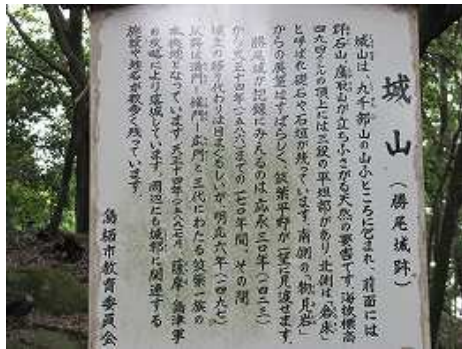 城山（勝尾城跡）
城山は、九千部山の山ふところに包まれ、前面には
群石山、鷹取山が立ちふさがる天然の要害です。海抜標高
の頂上には三段の平坦部があり、北側は
と呼ばれ礎石や石垣が残っています。南側の“物見岩”
からの展望はすばらしく、筑紫平野が一望に見渡せます。
勝尾城が記録にみえるのは応永三〇年（一四二三）
から天正十四年（一五八六）までの一七〇年間、その間
城主の移り代わりは目まぐるしいが、明応六年（一四九七）
以降は満門ー惟門ー広門と三代にわたる筑紫一族の
本拠地となっています。天正十四年（一五八六）七月、薩摩の島津軍
の攻略により落城しています。周辺にも城郭に関連する
施設や地名が数多く残っています。
鳥栖市教育委員会